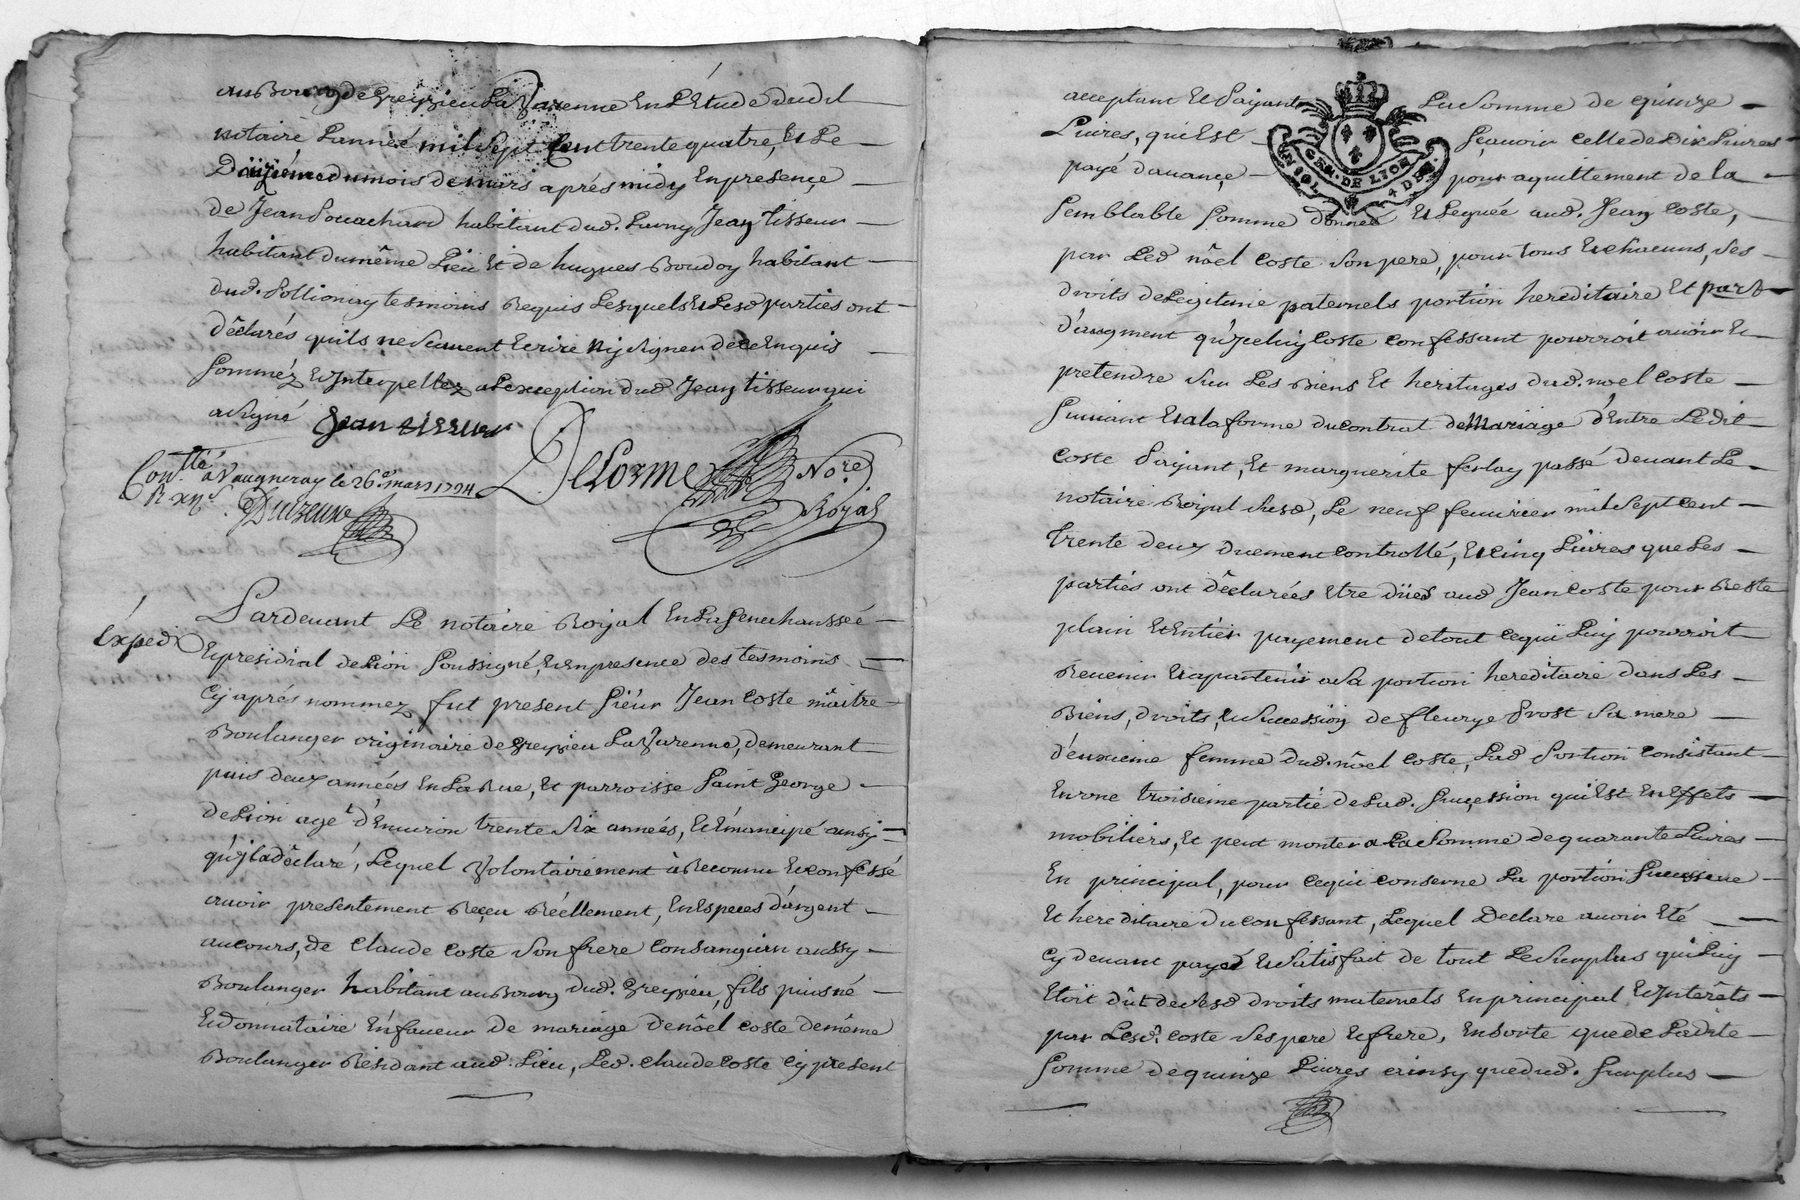 au Bourg de Greyzieu La Varenne En L'Etude dudit
notaire L'année mil Sept Cent trente quatre, Et Le
Douziéme du mois de mars aprés midy En presençe
de Jean Souachard habitant dud. Jean tisseur
habitant du même Lieu Et de hugues Boudoy habitant
dud. Pollionay tesmoins Requis Lesquels Et Lesd parties ont
déclarés quils ne Scauent Ecrire Ny Signer de ce Enquis
Sommés Et Interpellez a L'exception dud Jean tisseur qui
a Signé Jean tisseur
Con.tté a Vaugneray le 26e mars 1734
R
DeLorme No.re
Royal
Expedx
Pardeuant Le notaire Royal En La Senechaussée
Et presidial de Lion Soussigné, Et En presence des tesmoins
Cy aprés nommez fut present Siéur Jean Coste maître
Boulanger originaire de Greyzieu La Varenne, demeurant
puis deux années En La Rue, Et parroisse Saint George
de Lion agé d'Enuiron trente Six années, Et Emancipé ainsy
qu'jl a déclaré, Lequel Volontairement à Reconnu Et confessé
auoir presentement Reçeu Réellement, En Especes d'argent
au cours, de Claude Coste Son frere Consanguin aussy
Boulanger habitant au Bourg dud. Greyzieu, fils puisné
Et donnataire En faueur de mariage de noêl Coste de même
Boulanger Residant aud. Lieu, Led. Claude Coste Cy present
acceptant Et Payant La Somme de quinze
Liures, qui Est Sçauoir Celle de Dix Liures
GEN. DE LION
4 DEN.
payé d'auançe pour aquittement de la
Semblable Somme donnée Et Leguée aud. Jean Coste,
par Led noêl Coste Son pere, pour tous Et chacuns, Ses
droits de Legitime paternels portion hereditaire Et part
d'augment qu'jceluy Coste Confessant pourroit auoir Et
pretendre Sur Les Biens Et heritages dud. noel Coste
Suiuant Et a la forme du contrat de Mariage d'Entre Ledit
Coste Payant, Et marguerite ferlay passé deuant Le
notaire Royal Susd, Le neuf feuurier mil Sept Cent
trente deux duement Controllé, Et Cinq Liures que Les
parties ont déclarées Etre dües aud Jean Coste pour Reste
plain Et Entier payement de tout Ce qui Luy pourroit
Reuenir Et apartenir a Sa portion hereditaire dans Les
Biens, droits, Et Succession de fleurye Prost Sa mere
d'euxieme femme dud. noêl Coste, Lad Portion Consistant
En vne troisieme partie de Lad. Suçession qui Est En Effets
mobiliers, Et peut monter a La Somme de quarante Liures
En principal, pour Ce qui Conserne La portion Successiue
Et héreditaire du Confessant, Lequel Declare auoir Eté
Cy deuant payé Et Satisfait de tout Le Surplus qui Luy
Etoit dût de Sesd droits maternels En principal Et Interêts
par Lesd. Coste Ses pere Et frere, En Sorte que de Ladite
Somme de quinze Liures ainsy que dud. Surplus